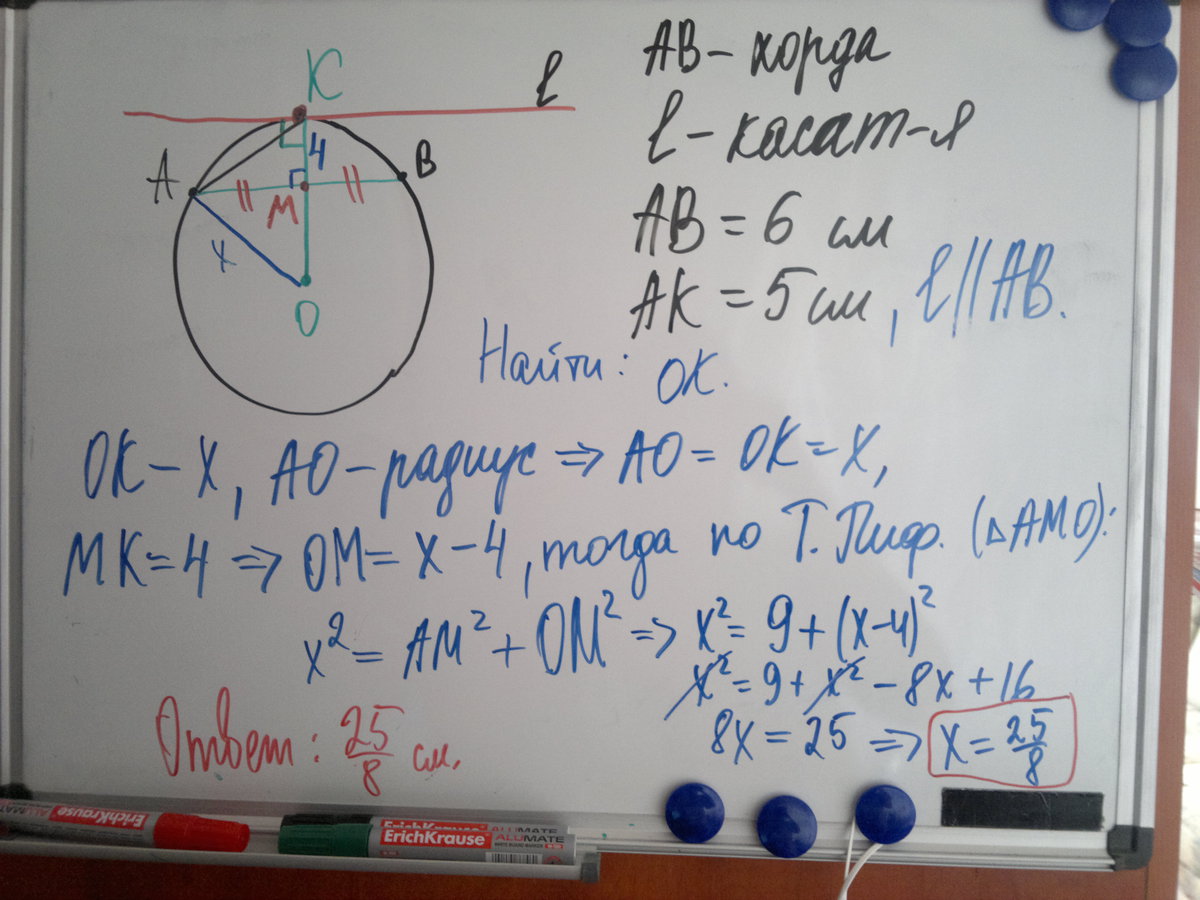 K
ℓ
4
A
B
M
x
O
AB – хорда
ℓ – касат-я
AB = 6 см
AK = 5 см, ℓ || AB.
Найти: OK.
OK – x, AO – радиус ⇒ AO = OK = x,
MK = 4 ⇒ OM = x – 4, тогда по Т. Пиф. (△AMO):
x² = AM² + OM² ⇒ x² = 9 + (x–4)²
x² = 9 + x² – 8x + 16
8x = 25 ⇒ x = 25/8
Ответ: 25/8 см.
ErichKrause
ALUMATE
ErichKrause
ALUMATE